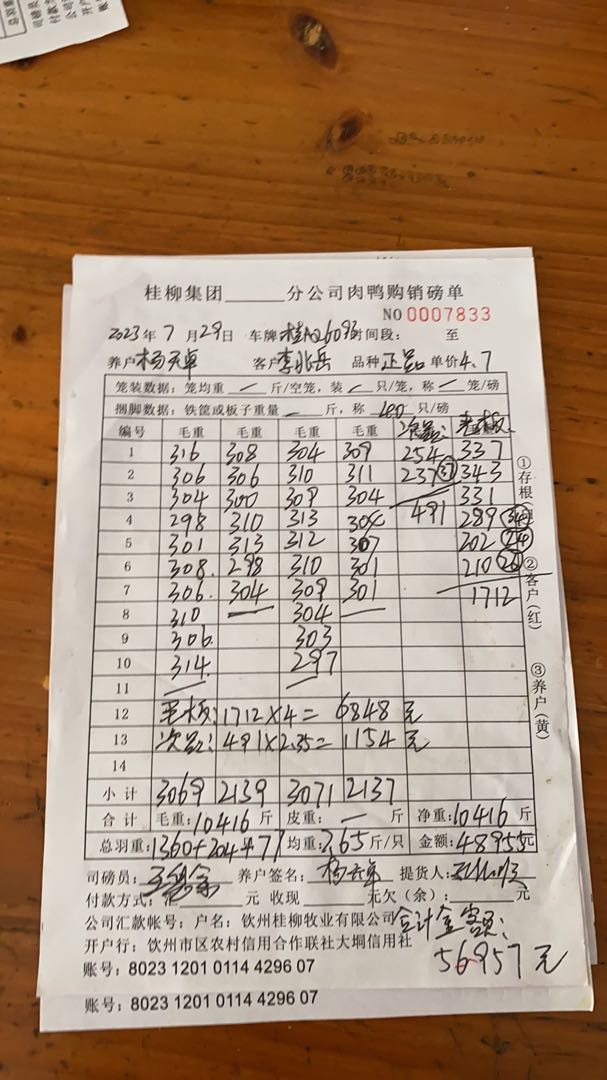 桂柳集团______分公司肉鸭购销磅单
NO 0007833
2023年7月29日 车牌 桂 6093 时间段: 至
养户 杨天卓 客户 李兆岳 品种 正品 单价 4.7
笼装数据：笼均重 — 斤/空笼，装 — 只/笼，称 — 笼/磅
捆脚数据：铁筐或板子重量 — 斤，称 40 只/磅
编号 毛重 毛重 毛重 毛重 次品: 毛板:
1 316 308 304 309 254 337
2 306 306 310 311 237 37 343
3 304 300 309 304 331
4 298 310 313 304 491 289 34
5 301 313 312 307 202 24
6 308 298 310 301 210 26
7 306 304 309 301 1712
8 310 — 304 —
9 306 303
10 314 297
11
12 毛板:1712×4=6848元
13 次品:491×2.35=1154元
14
小计 3069 2139 3071 2137
合计 毛重:10416斤 皮重: — 斤 净重:10416斤
总羽重:1360+204+77 均重:7.65斤/只 金额:48955元
司磅员: 养户签名: 杨天卓 提货人:
付款方式: 元 收现 元欠（余）: 元
公司汇款帐号：户名：钦州桂柳牧业有限公司 合计金额:
开户行：钦州市区农村信用合作联社大垌信用社
56957元
账号：8023 1201 0114 4296 07
账号：8023 1201 0114 4296 07
①存根
②客户（红）
③养户（黄）